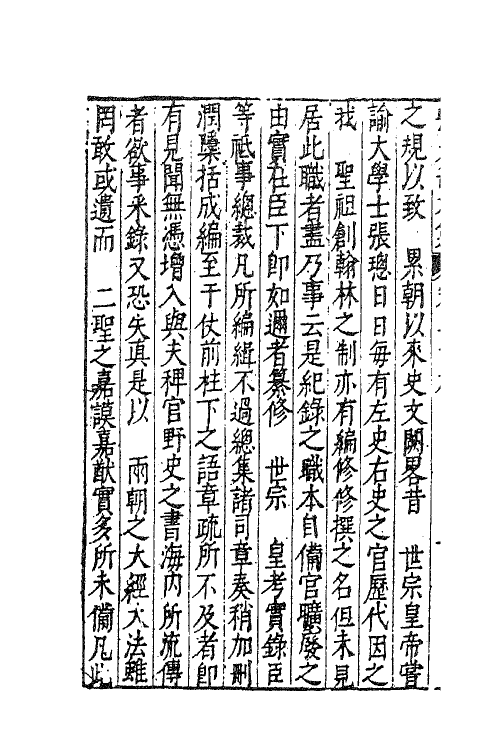 之規以致　累朝以來史文闕畧昔　世宗皇帝嘗
諭大學士張璁曰日每有左史右史之官歷代因之
我　聖祖創翰林之制亦有編修修撰之名但未見
居此職者盡乃事云是紀錄之職本自備官曠廢之
由實在臣下卽如邇者纂修　世宗　皇考實錄臣
等祗事總裁凡所編緝不過總集諸司章奏稍加刪
潤櫽括成編至于仗前柱下之語章疏所不及者卽
有見聞無憑增入與夫稗官野史之書海內所流傳
者欲事釆錄又恐失真是以　兩朝之大經大法雖
罔敢或遺而　二聖之嘉謨嘉猷實多所未備凡此